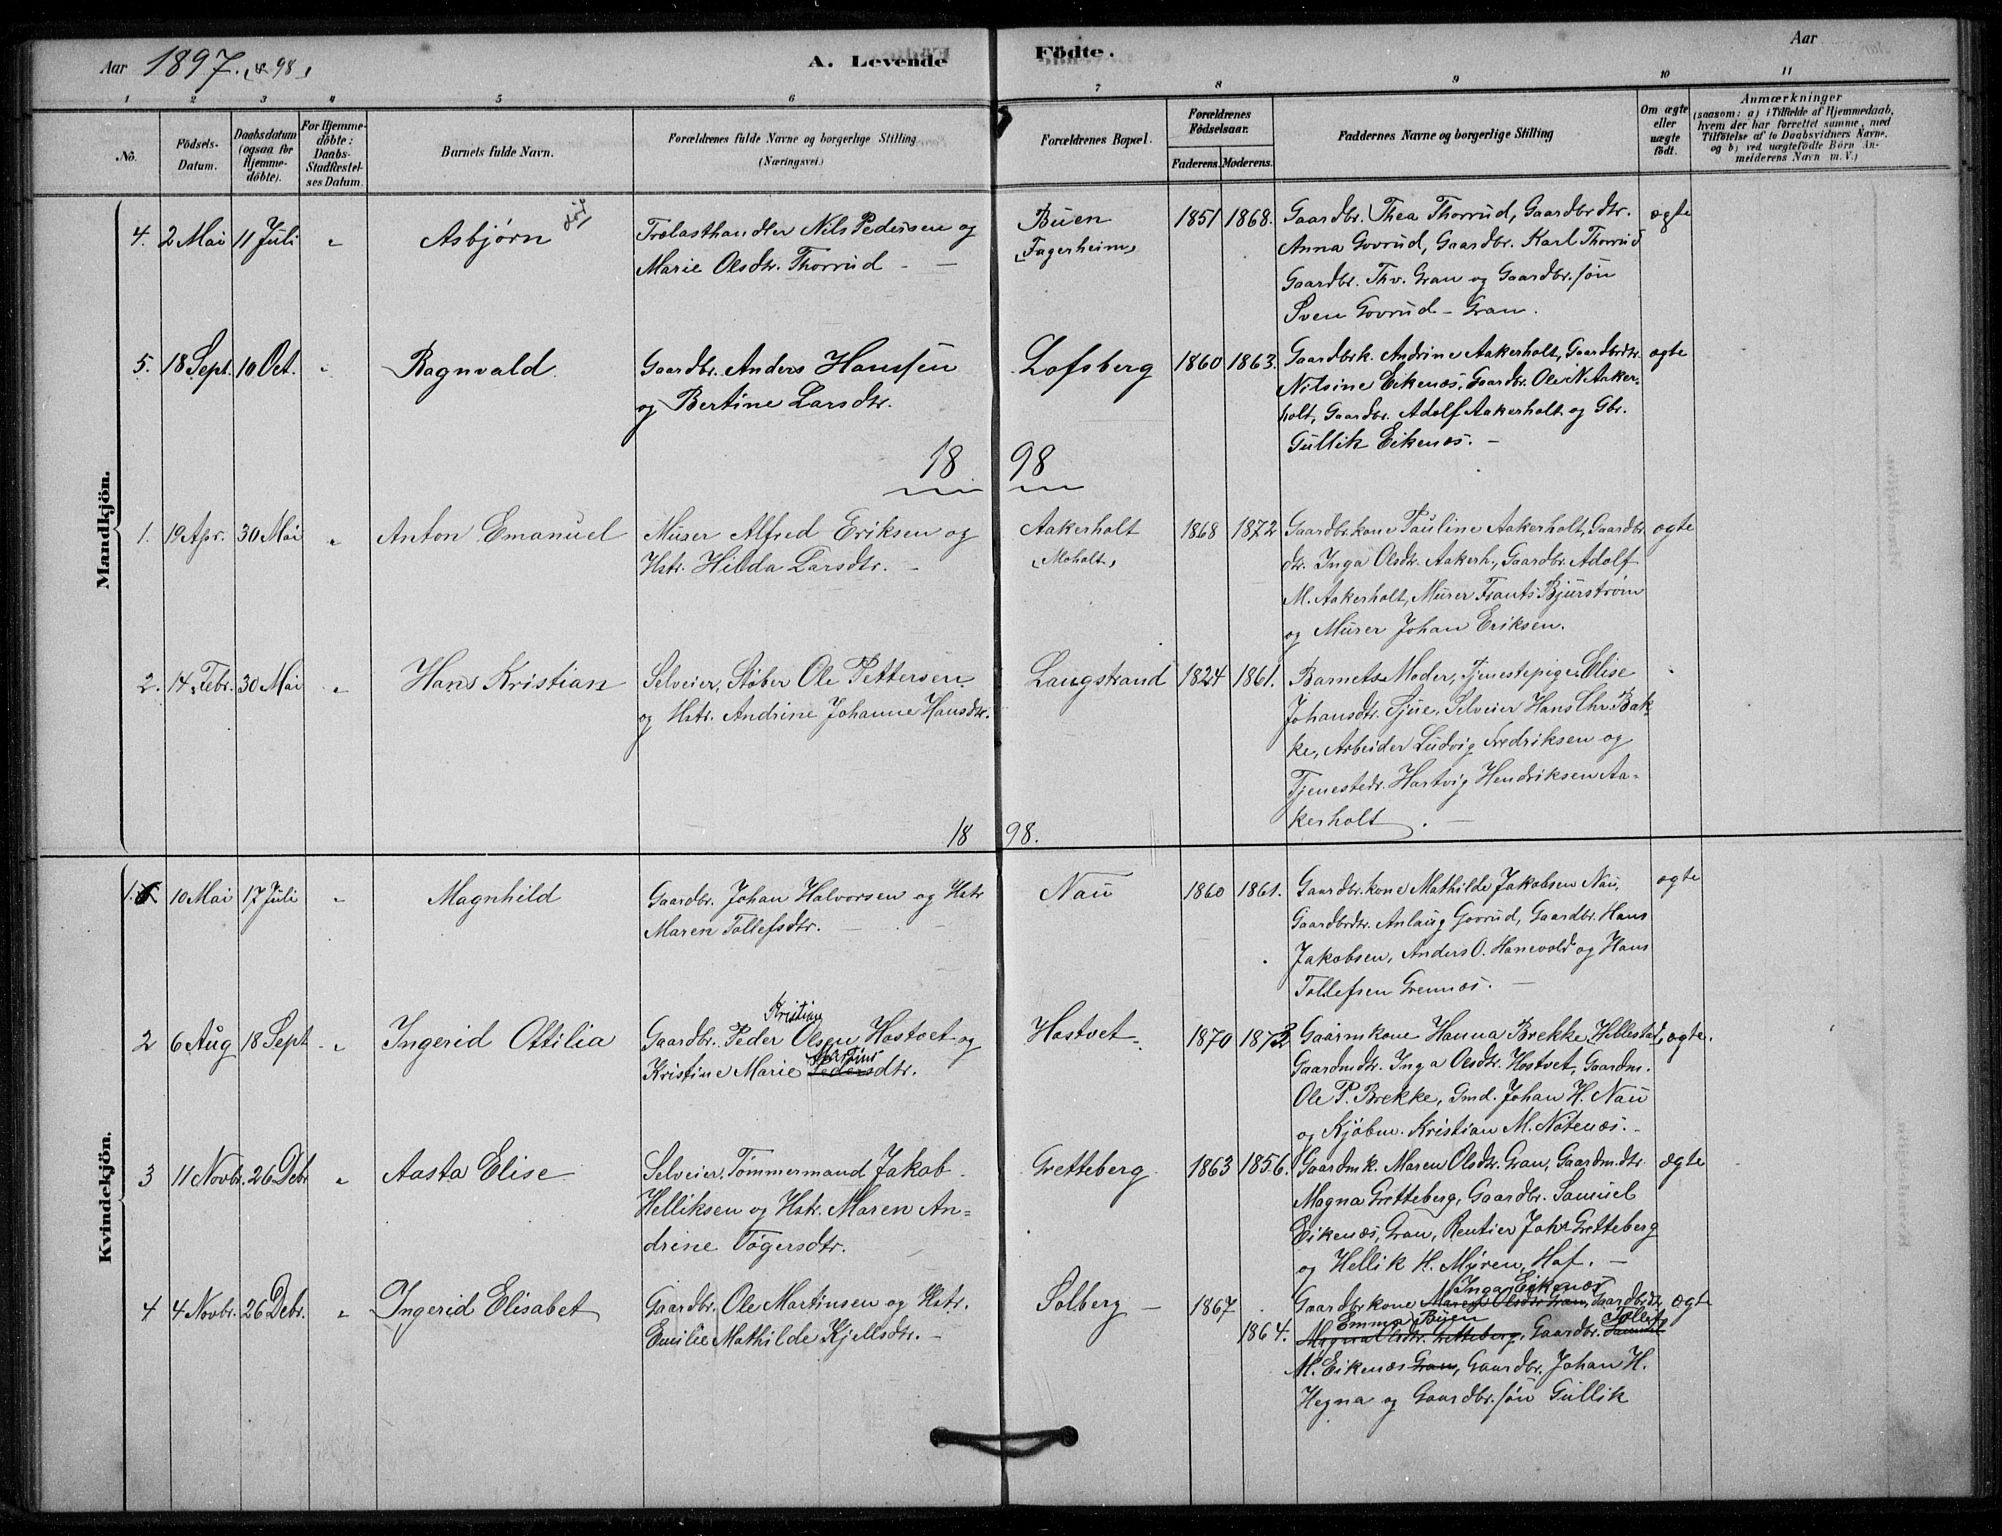 Aar 1897. (& 98)
A. Levende
Födte.
Aar
1 2 3 4 5 6 7 8 9 10 11
No.
Födsels-
Datum.
Daabsdatum
(ogsaa for
Hjemme-
döbte).
For Hjemme-
döbte:
Daabs-
Stadfæstel-
ses Datum.
Barnets fulde Navn.
Forældrenes fulde Navne og borgerlige Stilling
(Næringsvei.)
Forældrenes Bopæl.
Forældrenes
Födselsaar.
Faderens. Moderens.
Faddernes Navne og borgerlige Stilling
Om ægte
eller
uægte
födt.
Anmærkninger
(saasom: a) i Tilfælde af Hjemmedaab,
hvem der har forrettet samme, med
Tilföielse af to Daabsvidners Navne,
og b) ved uægtefödte Börn An-
melderens Navn m. V.)
Mandkjön.
4. 2 Mai 11 Juli " Asbjørn
Trælasthandler Nils Pedersen og
Marie Olsdtr. Thorrud - -
Buen
(Fagerheim)
1851 1868.
Gaardbr. Thea Thorrud, Gaardbrdtr.
Anna Govrud, Gaardbr. Karl Thorrud
Gaardbr. Thv. Gran og Gaardbr.søn
Sven Govrud - Gran.
ægte
5. 18 Sept. 10 Oct. " Ragnvald
Gaardbr. Anders Hanssen
og Bertine Larsdtr.
Lofsberg
1860 1863.
Gaardbrk. Andrine Aakerholt, Gaardbrdtr.
Nilsine Eikenæs, Gaardbr. Ole N. Aaker-
holt, Gaardbr. Adolf Aakerholt og Gbr.
Gullik Eikenæs. -
ægte
18 98
1. 19 Apr. 30 Mai " Anton Emanuel
Murer Alfred Eriksen og
Hstr. Hilda Larsdtr. -
Aakerholt
(Moholt)
1868 1872
Gaardbr.kone Pauline Aakerholt, Gaardbr.
dtr. Inga Olsdtr. Aakerh., Gaardbr. Adolf
M. Aakerholt, Murer Frants Bjurstrøm
og Murer Johan Eriksen.
ægte
2. 14 Febr. 30 Mai " Hans Kristian
Selveier, Støber Ole Pettersen
og Hstr. Andrine Johanne Hansdtr.
Langstrand
1824 1861.
Barnets Moder, Tjenestepige Elise
Johansdtr. Tjue, Selveier Hans Chr. Bak-
ke, Arbeider Ludvig Fredriksen og
Tjenestedr. Hartvig Hendriksen Aa-
kerholt. -
18 98.
Kvindekjön.
1. 10 Mai 17 Juli " Magnhild
Gaardbr. Johan Halvorsen og Hstr
Maren Tollefsdtr. -
Nau
1860 1861.
Gaardbr.kone Mathilde Jakobsen Nau,
Gaardbrdtr. Anlaug Govrud, Gaardbr. Hans
Jakobsen, Anders O. Hanevold og Hans
Tollefsen Grennæs. -
ægte
2 6 Aug 18 Sept " Ingerid Ottilia
Kristian
Gaardbr. Peder Olsen Hostvet og
Martins
Kristine Marie Pedersdtr.
Hostvet
1870 1872
Gaarmkone Hanna Brekke, Hillestad,
Gaardmdtr. Inga Olsdtr. Hostvet, Gaardm.
Ole P. Brekke, Gmd. Johan H. Nau
og Kjøbm. Kristian M. Nøtenæs. -
ægte.
3 11 Novbr. 26 Debr " Aasta Elise
Selveier, Tømmermand Jakob
Helliksen og Hstr. Maren An-
drine Tøgersdtr.
Gretteberg
1863 1856.
Gaardmk. Maren Olsdtr. Gran, Gaardmdtr
Magna Gretteberg, Gaardbr. Samuel
Eikenæs, Gran, Rentier Johs Gretteberg
og Hellik H. Myren, Hof. -
ægte
4 4 Novbr. 26 Debr. " Ingerid Elisabet
Gaardbr. Ole Martinsen og Hstr.
Emilie Mathilde Kjellsdtr. -
Solberg -
1867
1864.
Inga Eikenæs
Gaardbrkone Maren Olsdtr Gran, Gaardbrdtr
Emma Buen Tollef
Magna Olsdtr. Gretteberg, Gaardbr. Samuel
M. Eikenæs Gran, Gaardbr. Johan H.
Hegna og Gaardbr.søn Gullik
ægte